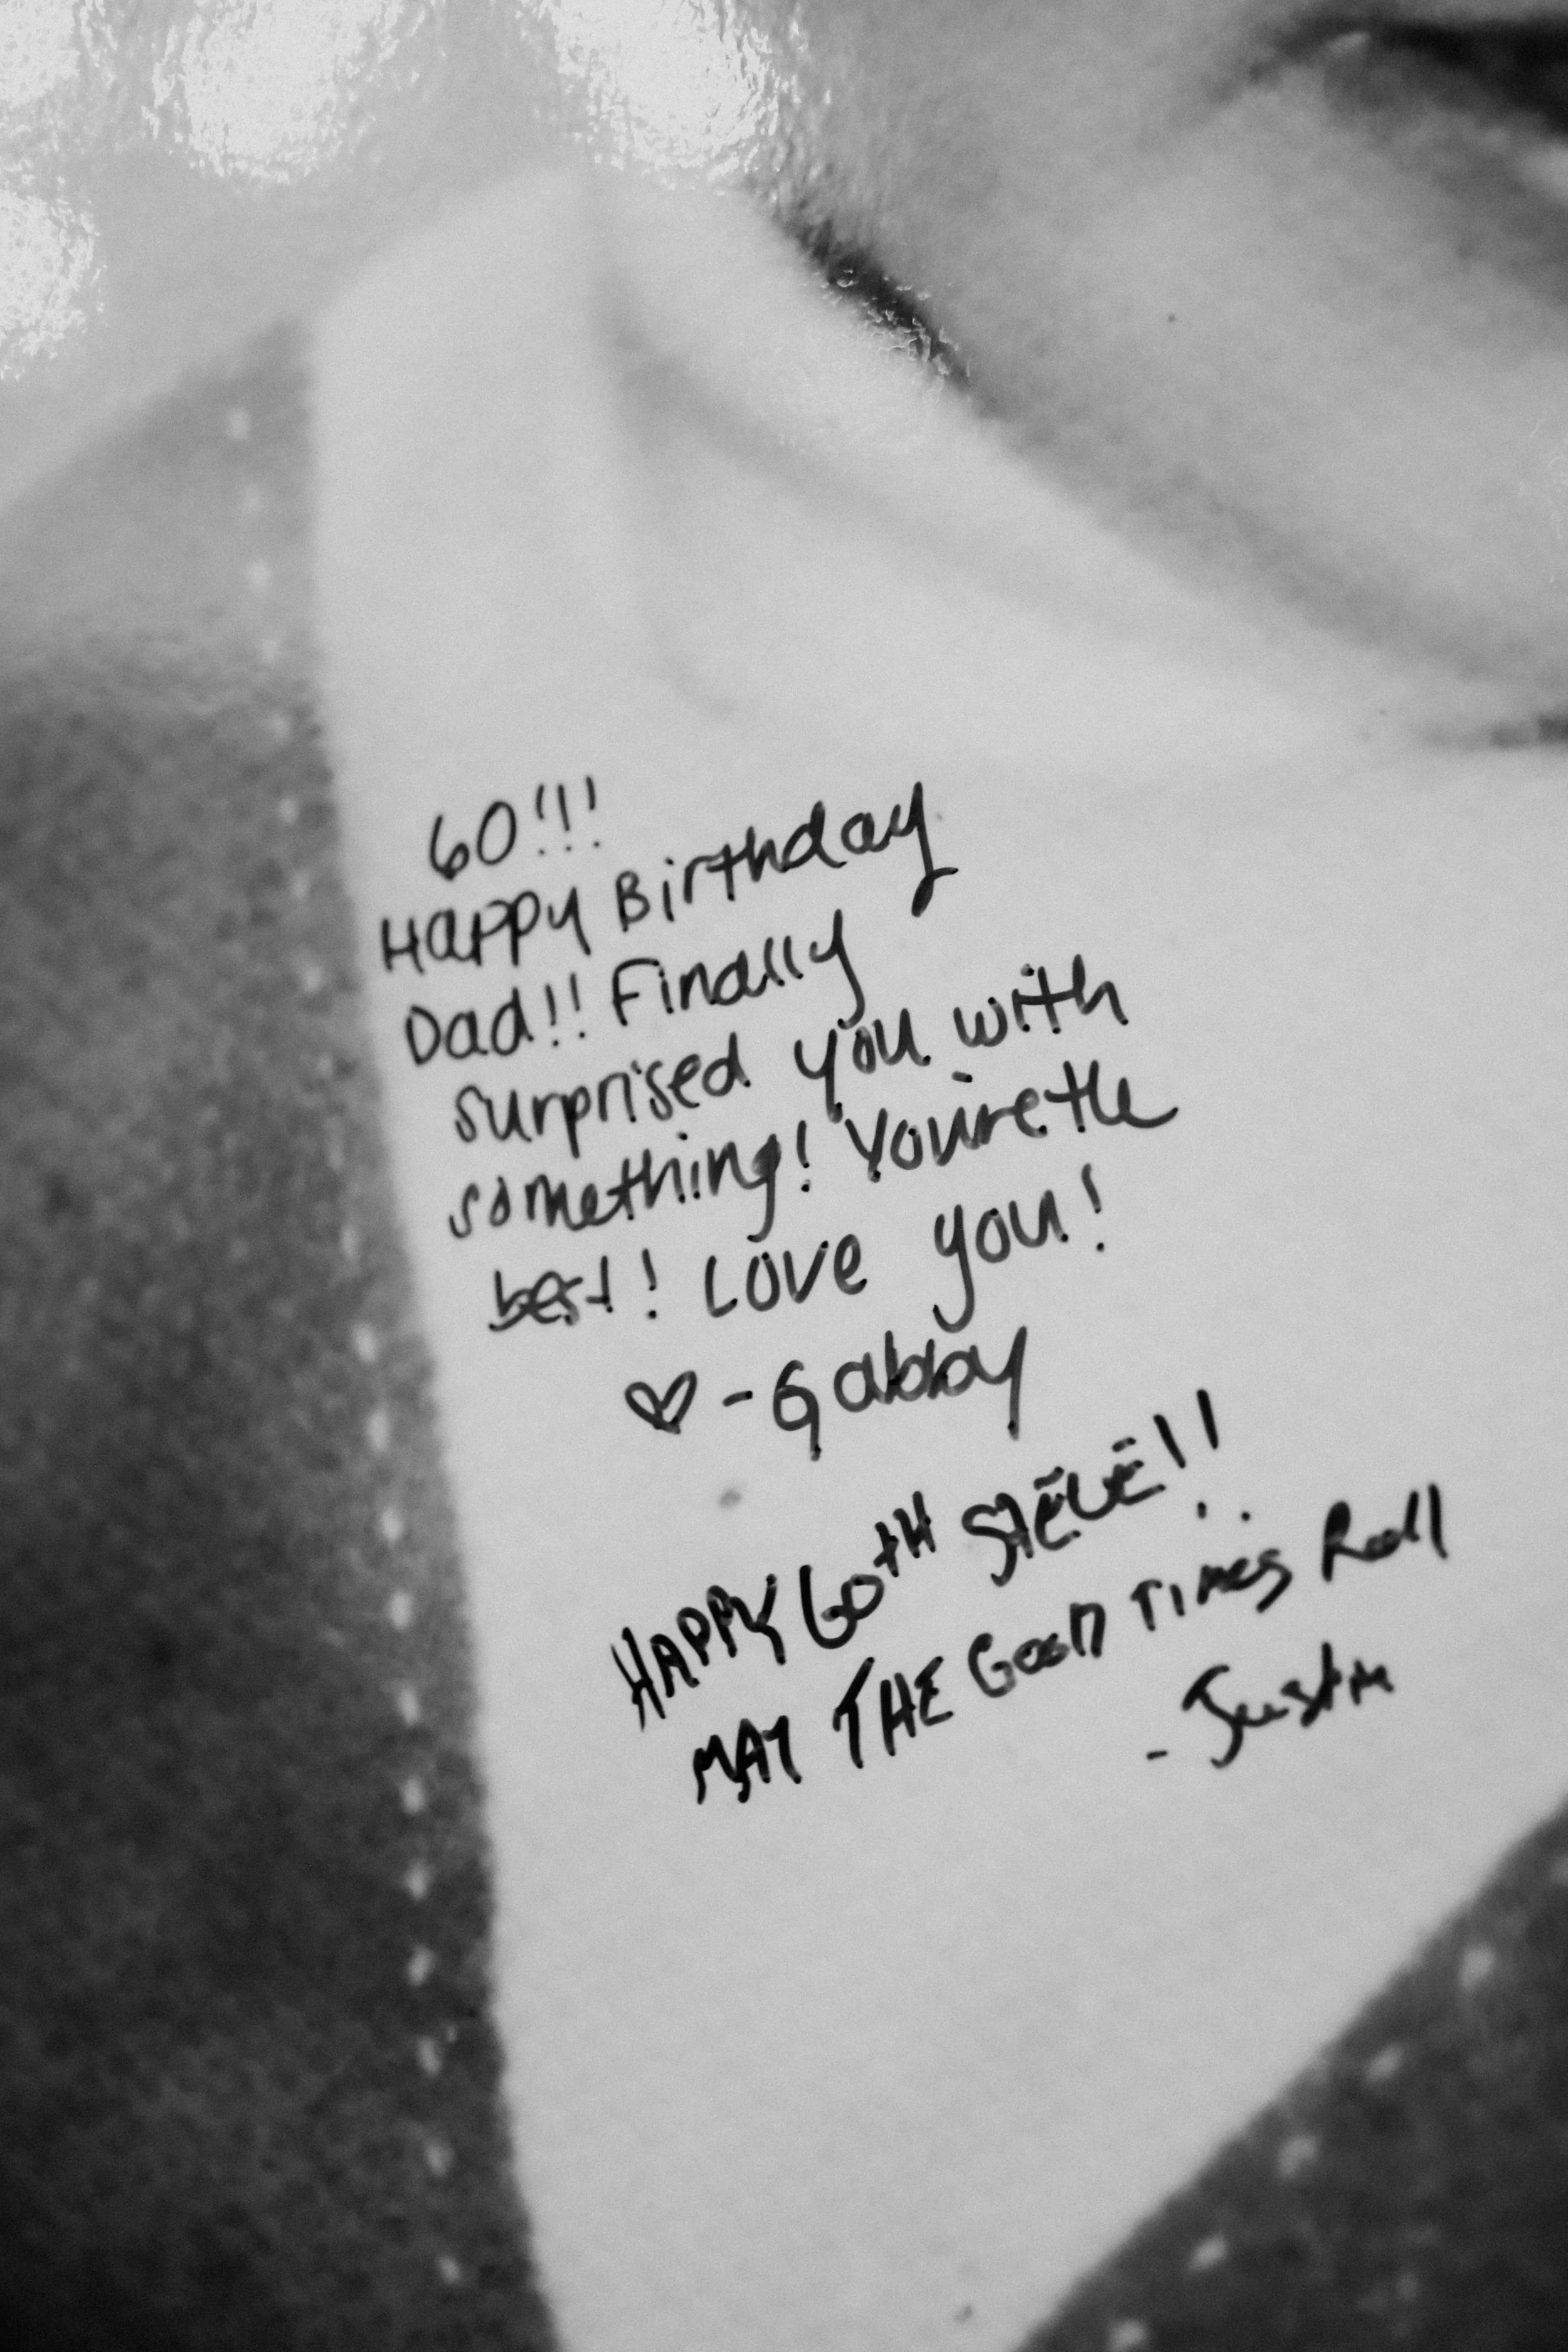 60!!!
Happy Birthday
Dad!! Finally
surprised you with
something! You're the
best! Love you!
♡ - Gabby
HAPPY 60TH STEVE!!
MAY THE GOOD TIMES ROLL
- Justin